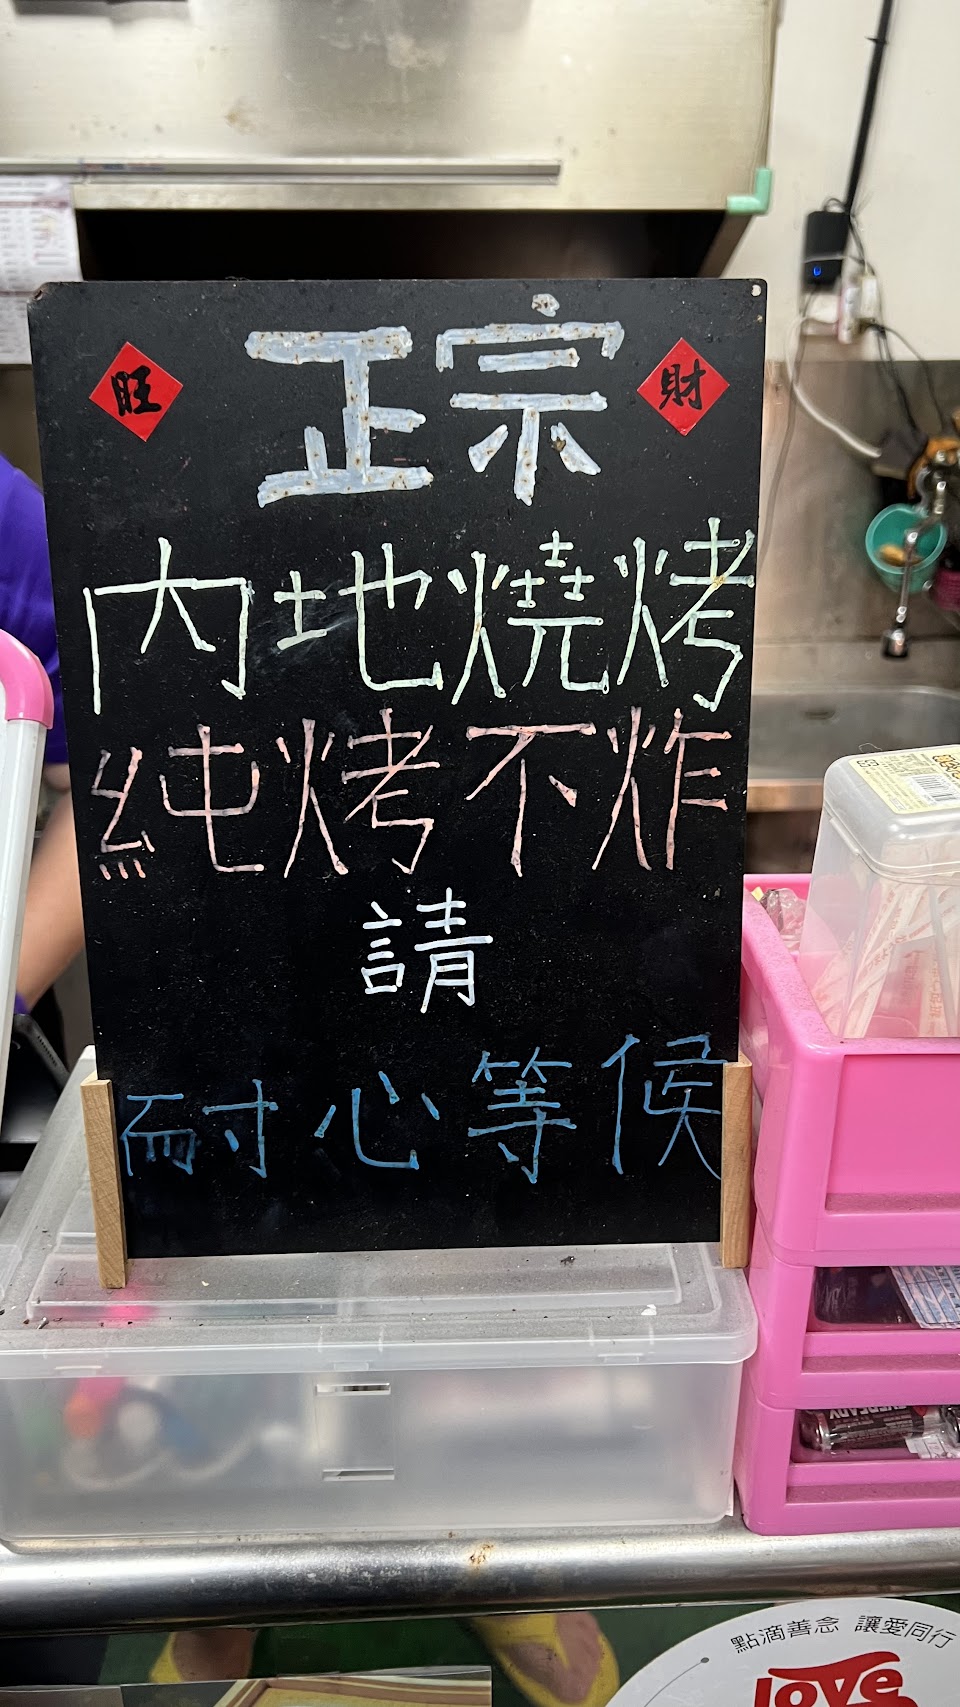 旺
正宗
財
內地燒烤
純烤不炸
請
耐心等候
點滴善念 讓愛同行
love